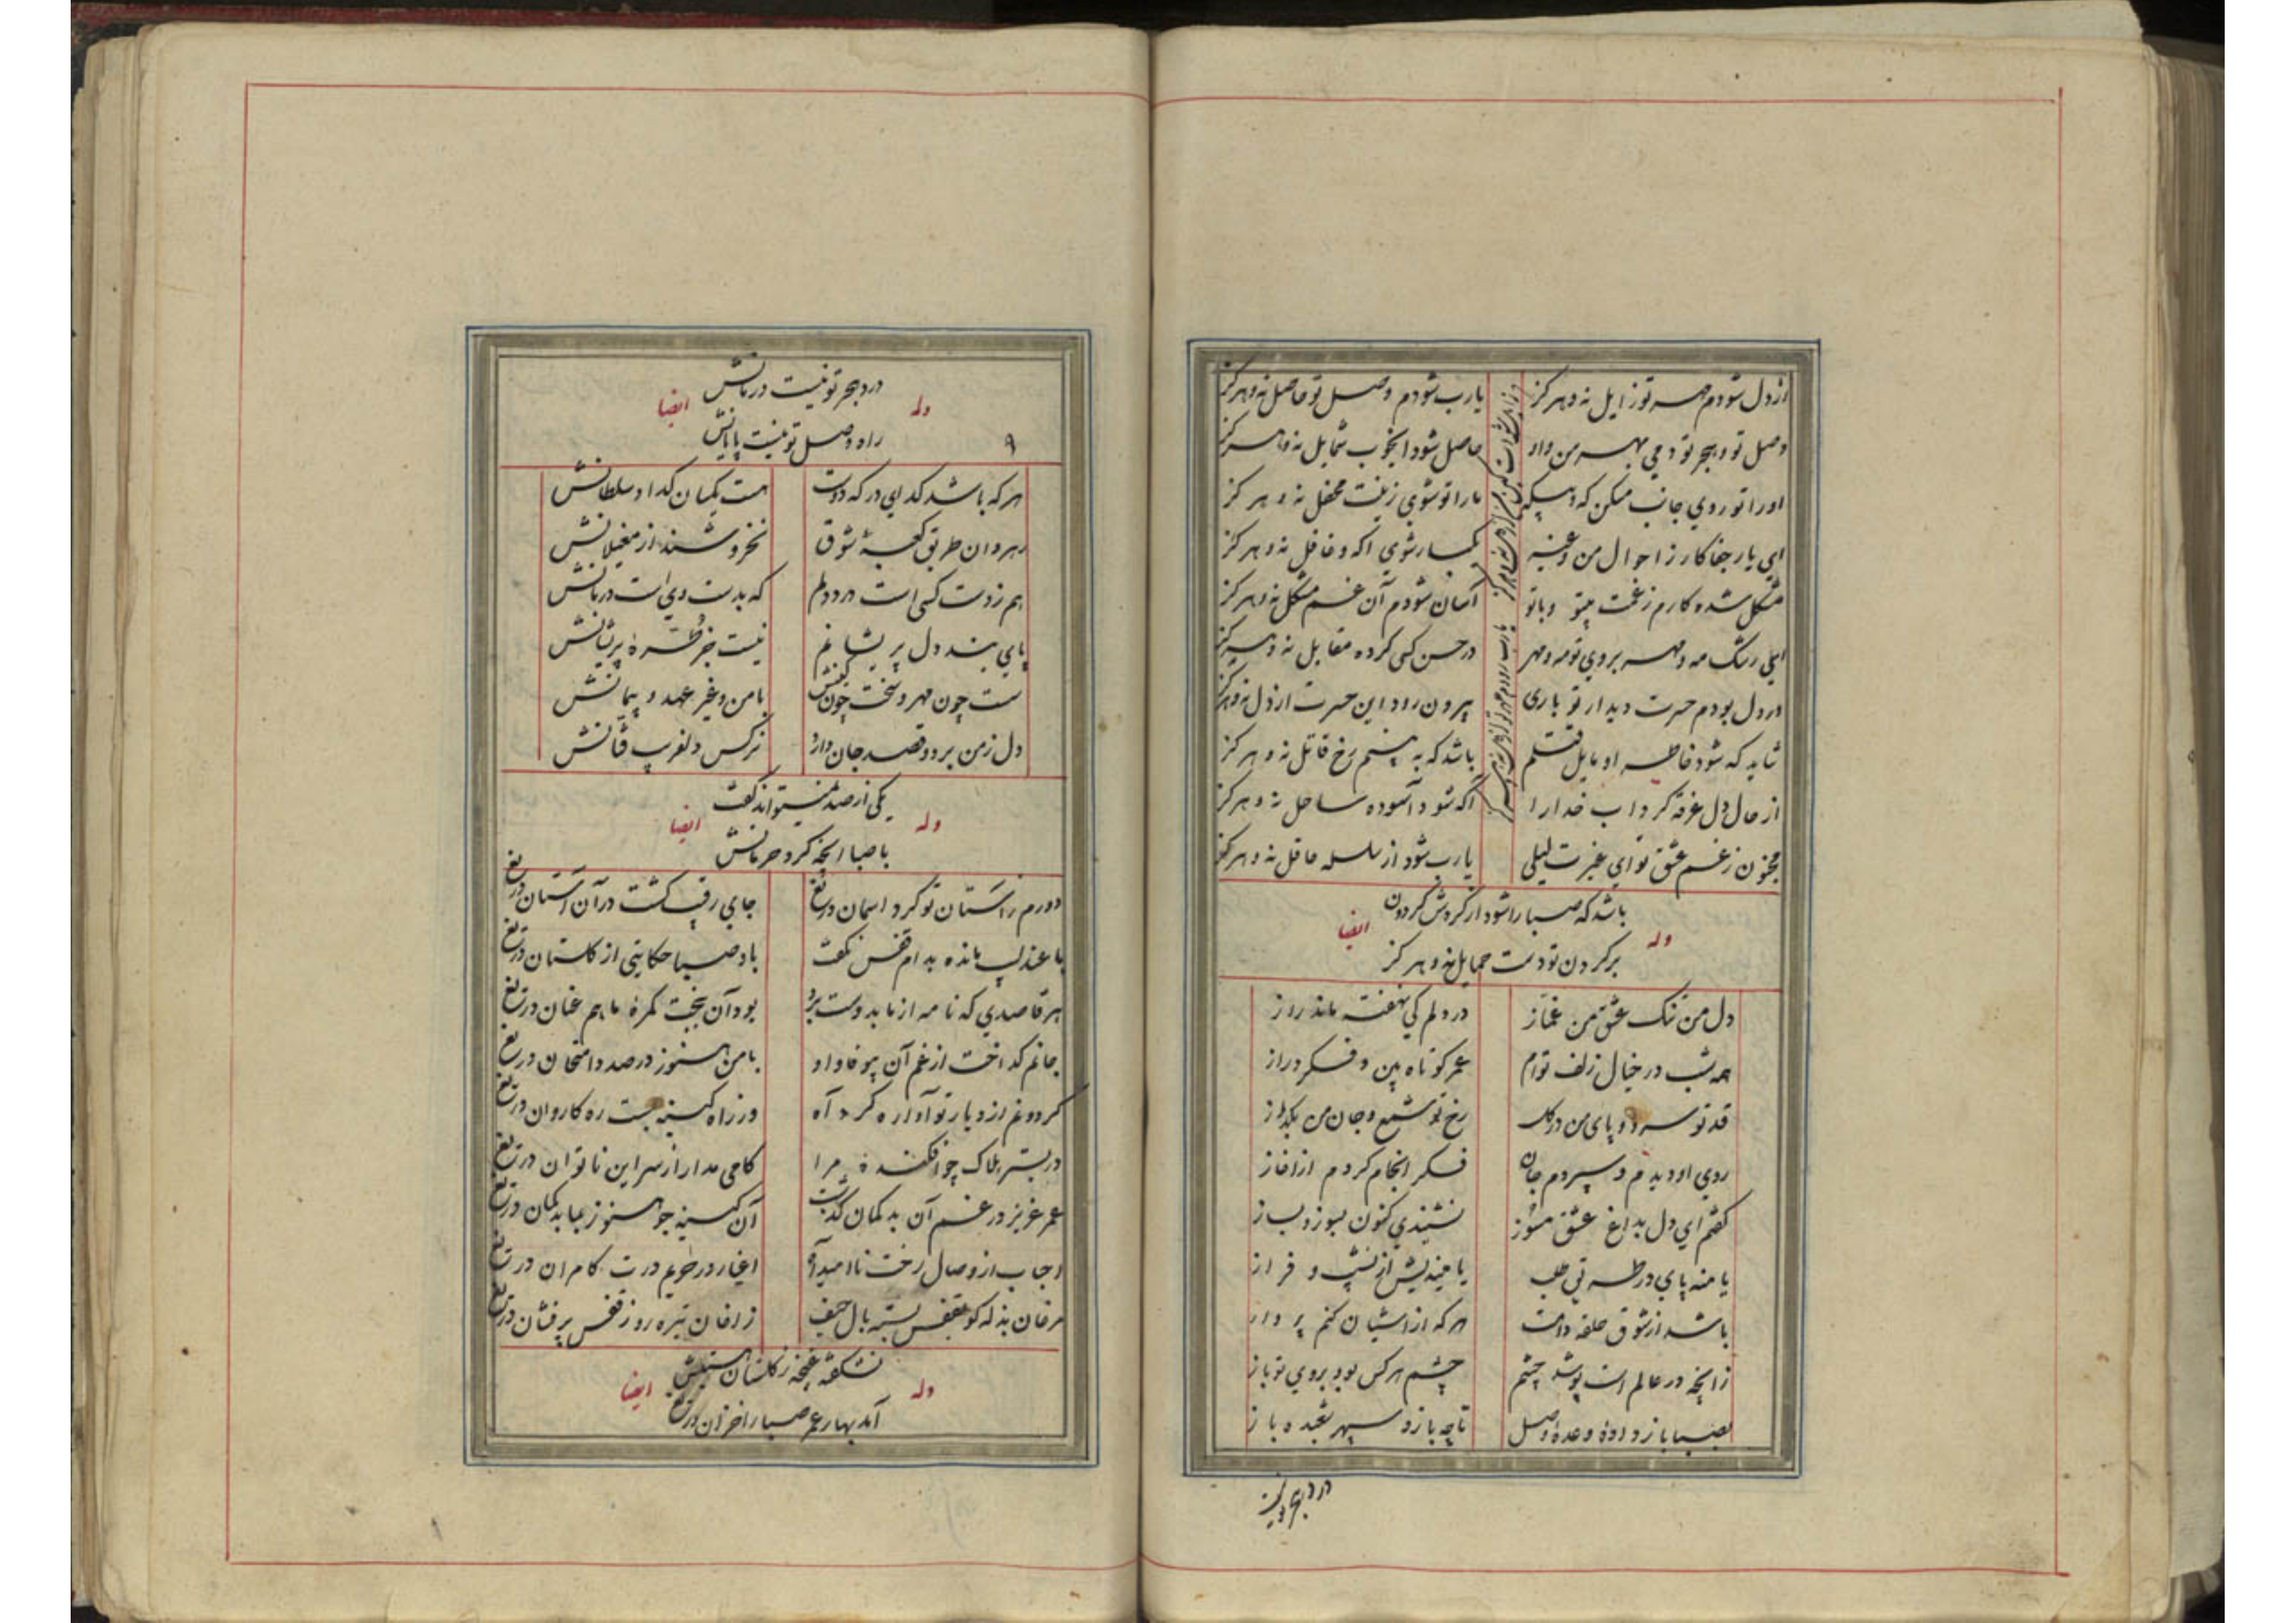 از دل شودم مهر تو زایل نه و هرگز
یارب شودم وصل تو حاصل نه و هرگز
وصل تو و هجر تو دمی بهر من و او
حاصل شود ای خوب شمایل نه و هرگز
او را تو روی جانب مسکن که و بیکه
ما را تو شوی زینت محفل نه و هرگز
ای یار جفاکار ز احوال من و غیر
یکبار شوی آگه و غافل نه و هرگز
مشکل شده کارم ز غمت بیتو و با تو
آسان شودم آن غم مشکل نه و هرگز
ای رشک مه و مهر بروی تو مه و مهر
در حسن کسی کرده مقابل نه و هرگز
در دل بودم حسرت دیدار تو باری
بیرون رود این حسرت از دل نه و هرگز
شاید که شود خاطر او مایل قتلم
باشد که به بینم رخ قاتل نه و هرگز
از حال دل غرقه گرداب خدا را
آگه شود آسوده ساحل نه و هرگز
مجنون ز غم عشق تو ای غیرت لیلی
یارب شود از سلسله عاقل نه و هرگز
باشد که صبا را شود از گردش گردون
وله ایضا
بر گردن تو دست حمایل نه و هرگز
دل من تنک عشق من غماز
در دلم کی نهفته ماند راز
همه شب در خیال زلف توام
عمر کوتاه بین و فکر دراز
قد تو سرو و پای من در گل
رخ تو شمع و جان من بگداز
روی او دیدم و سپردم جان
فکر انجام کردم از اغاز
گفتم ای دل بداغ عشق مسوز
نشنیدی کنون بسوز و بساز
یا منه پای در طریق طلب
یا میندیش از نشیب و فراز
باشد از شوق حلقه دامت
هر که از اشیان کنم پرواز
زانچه در عالم است پوشد چشم
چشم هر کس بود بروی تو باز
بصبا باز داده وعده وصل
تا چه بازد سپهر شعبده باز
درد هجر تو نیست
درد هجر تو نیست درمانش
وله ایضا
راه وصل تو نیست پایانش
۹
هر که باشد گدای درگه دوست
هست یکسان گدا و سلطانش
رهروان طریق کعبه شوق
نخروشند از مغیلانش
هم ز دست کسی است درد دلم
که بدست وی است درمانش
پای بند دل پریشانم
نیست جز طره پریشانش
سست چون مهر و سخت چون کینش
با من و غیر عهد و پیمانش
دل ز من برد و قصد جان دارد
نرگس دلفریب فتانش
یکی از صد نمیتواند گفت
وله ایضا
با صبا انچه کرد حرمانش
دورم ز آستان تو کرد اسمان دریغ
جای رقیب گشت در آن آستان دریغ
با عندلیب مانده بدام قفس نگفت
باد صبا حکایتی از گلستان دریغ
هر قاصدی که نامه از ما بدوست برد
بود آن بخت گمره ما هم عنان دریغ
جانم گداخت از غم آن بیوفا و او
با من هنوز در صدد امتحان دریغ
گردونم از دیار تو آواره کرد آه
وز راه کینه بست ره کاروان دریغ
در بستر هلاک چو افکنده مرا
کامی مدار از سر این ناتوان دریغ
عمر عزیز در غم آن بدگمان گذشت
آن کینه جو هنوز بما بدگمان دریغ
احباب از وصال رخت ناامید آه
اغیار در حریم درت کامران دریغ
مرغان بذله گو بقفس بسته بال حیف
زاغان تیره روز قفس پرفشان دریغ
نشکفته غنچه ز گلستان
وله ایضا
آمد بهار عمر صبا را خزان دریغ